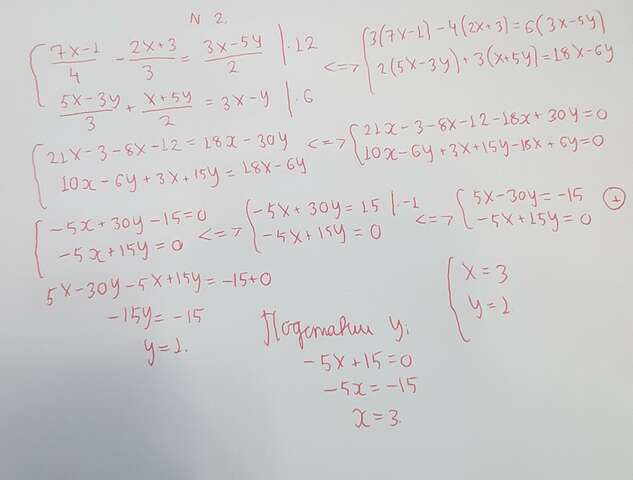 N 2.
{ (7x-1)/4 - (2x+3)/3 = (3x-5y)/2 |·12
(5x-3y)/3 + (x+5y)/2 = 3x-y |·6
<=> { 3(7x-1)-4(2x+3)=6(3x-5y)
2(5x-3y)+3(x+5y)=18x-6y
{ 21x-3-8x-12=18x-30y
10x-6y+3x+15y=18x-6y
<=> { 21x-3-8x-12-18x+30y=0
10x-6y+3x+15y-18x+6y=0
{ -5x+30y-15=0
-5x+15y=0
<=> { -5x+30y=15 |·-1
-5x+15y=0
<=> { 5x-30y=-15
-5x+15y=0 (+)
5x-30y-5x+15y=-15+0
-15y=-15
y=1.
Подставим y:
-5x+15=0
-5x=-15
x=3.
{ x=3
y=1